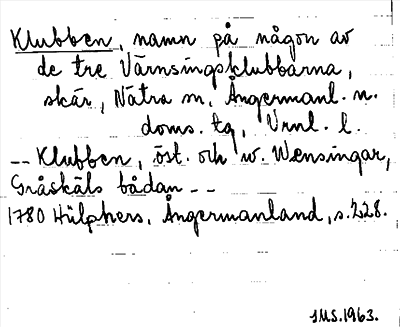 Klubben, namn på någon av
de tre Värnsingsklubbarna,
skär, Nätra sn, Ångermanl. n.
doms. tg, Vrnl. l.
-- Klubben, öst. och w. Wensingar,
Gråskäls bådan --
1780 Hülphers, Ångermanland, s. 228.
SMS. 1963.